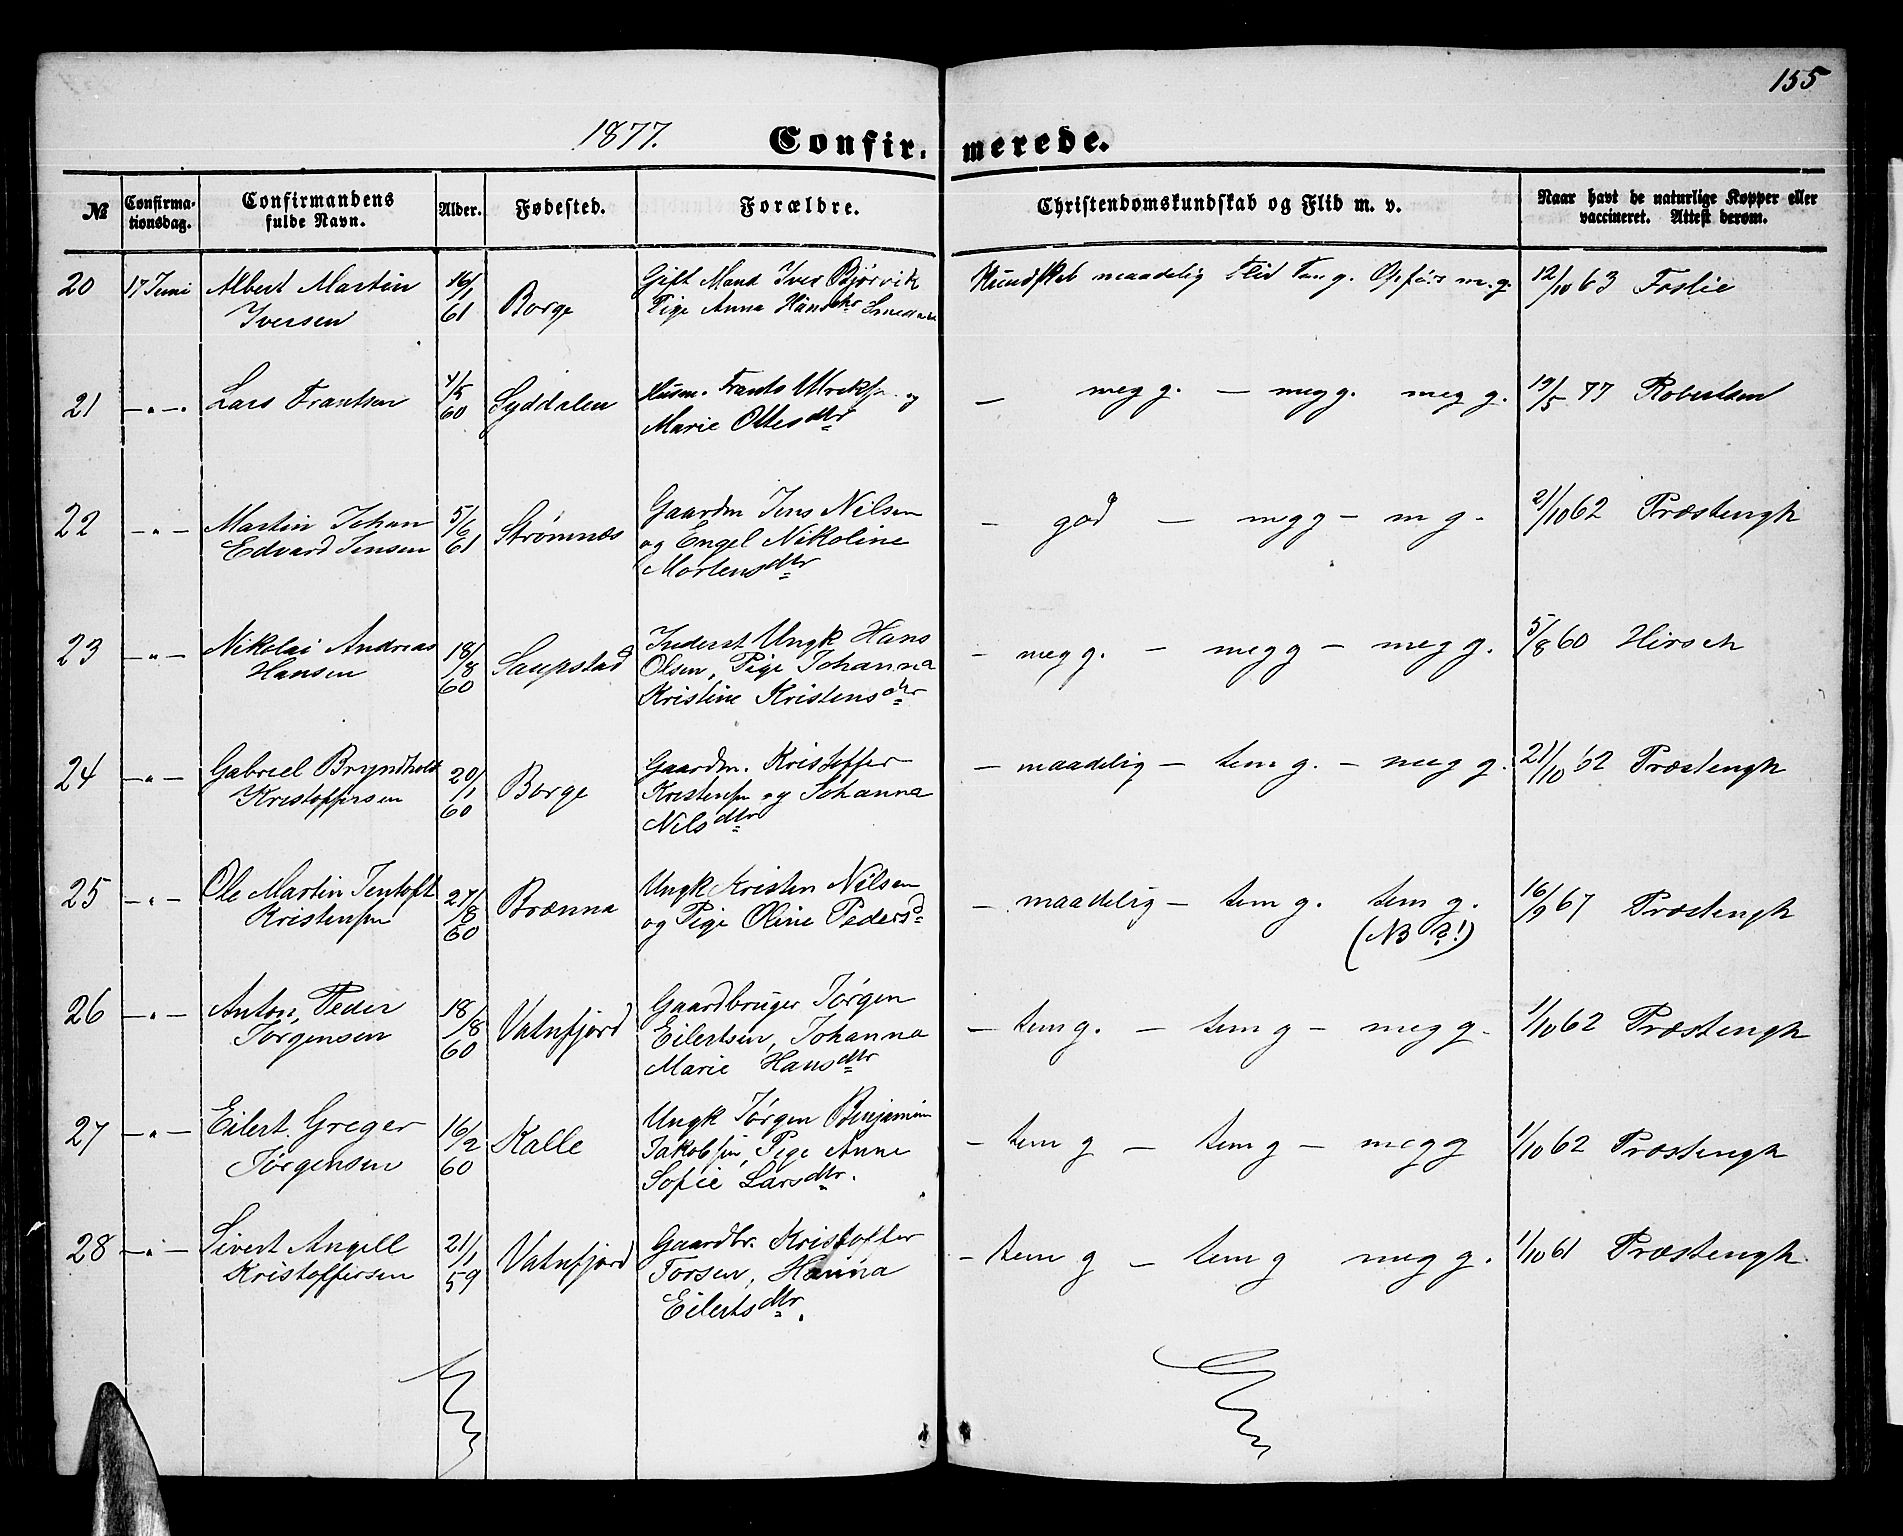 155
1877. Confir- merede.
№ Confirma-tionsdag. Confirmandens fulde Navn. Alder. Fødested. Forældre. Christendomskundskab og Flid m. v. Naar havt de naturlige Kopper eller vaccineret. Attest derom.
20 17 Juni Albert Martin 16/1 Gift Mand Iver Bjørvik Kundskab maadelig Flid tem g. Opførs m. g. 12/10 63 Foslie
Iversen 61 Borge Pige Anna Hansdtr
21 -"- Lars Frantsen 4/5 Syddalen Husm. Frants Ulriks. og — meg g. — megg. meg g. 19/5 77 Robertsen
60 Marie Ottesdtr
22 -"- Martin Johan 5/6 Strømnæs Gaardm Jens Nilsen - god — megg — m g. 21/10 62 Præstengh
Edvard Jensen 61 og Engel Nikoline
Mortensdtr
23 -"- Nikolai Andreas 18/8 Saupstad Inderst Ungk Hans - meg g. — megg — meg g. 5/8 60 Hirsch
Hansen 60 Olsen, Pige Johanna
Kristine Kristensdtr
24 -"- Gabriel Bryndhold 20/1 Borge Gaardm. Kristoffer - maadelig — tem g. — meg g. 21/10 62 Præstengh
Kristoffersen 60 Kristensen og Johanna
Nilsdtr
25 -"- Ole Martin Jentoft 27/8 Brænna Ungk Kristen Nilsen - maadelig — tem g. tem g. 16/9 67 Præstengh
Kristensen 60 og Pige Oline Pedersd (NB ?!)
26 -"- Anton Peder 18/8 Vatnfjord Gaardbruger Jørgen - tem g. — tem g — meg g. 1/10 62 Præstengh
Jørgensen 60 Eilertsen, Johanna
Marie Hansdtr
27 -"- Eilert Greger 16/2 Kalle Ungk Jørgen Benjamin - tem g — tem g — megg 1/10 62 Præstengh
Jørgensen 60 Jakobsen, Pige Anne
Sofie Larsdtr.
28 -"- Sivert Angell 21/1 Vatnfjord Gaardbr. Kristoffer - tem g — tem g meg g. 1/10 61 Præstengh.
Kristoffersen 59 Torsen, Hanna
Eilertsdtr.